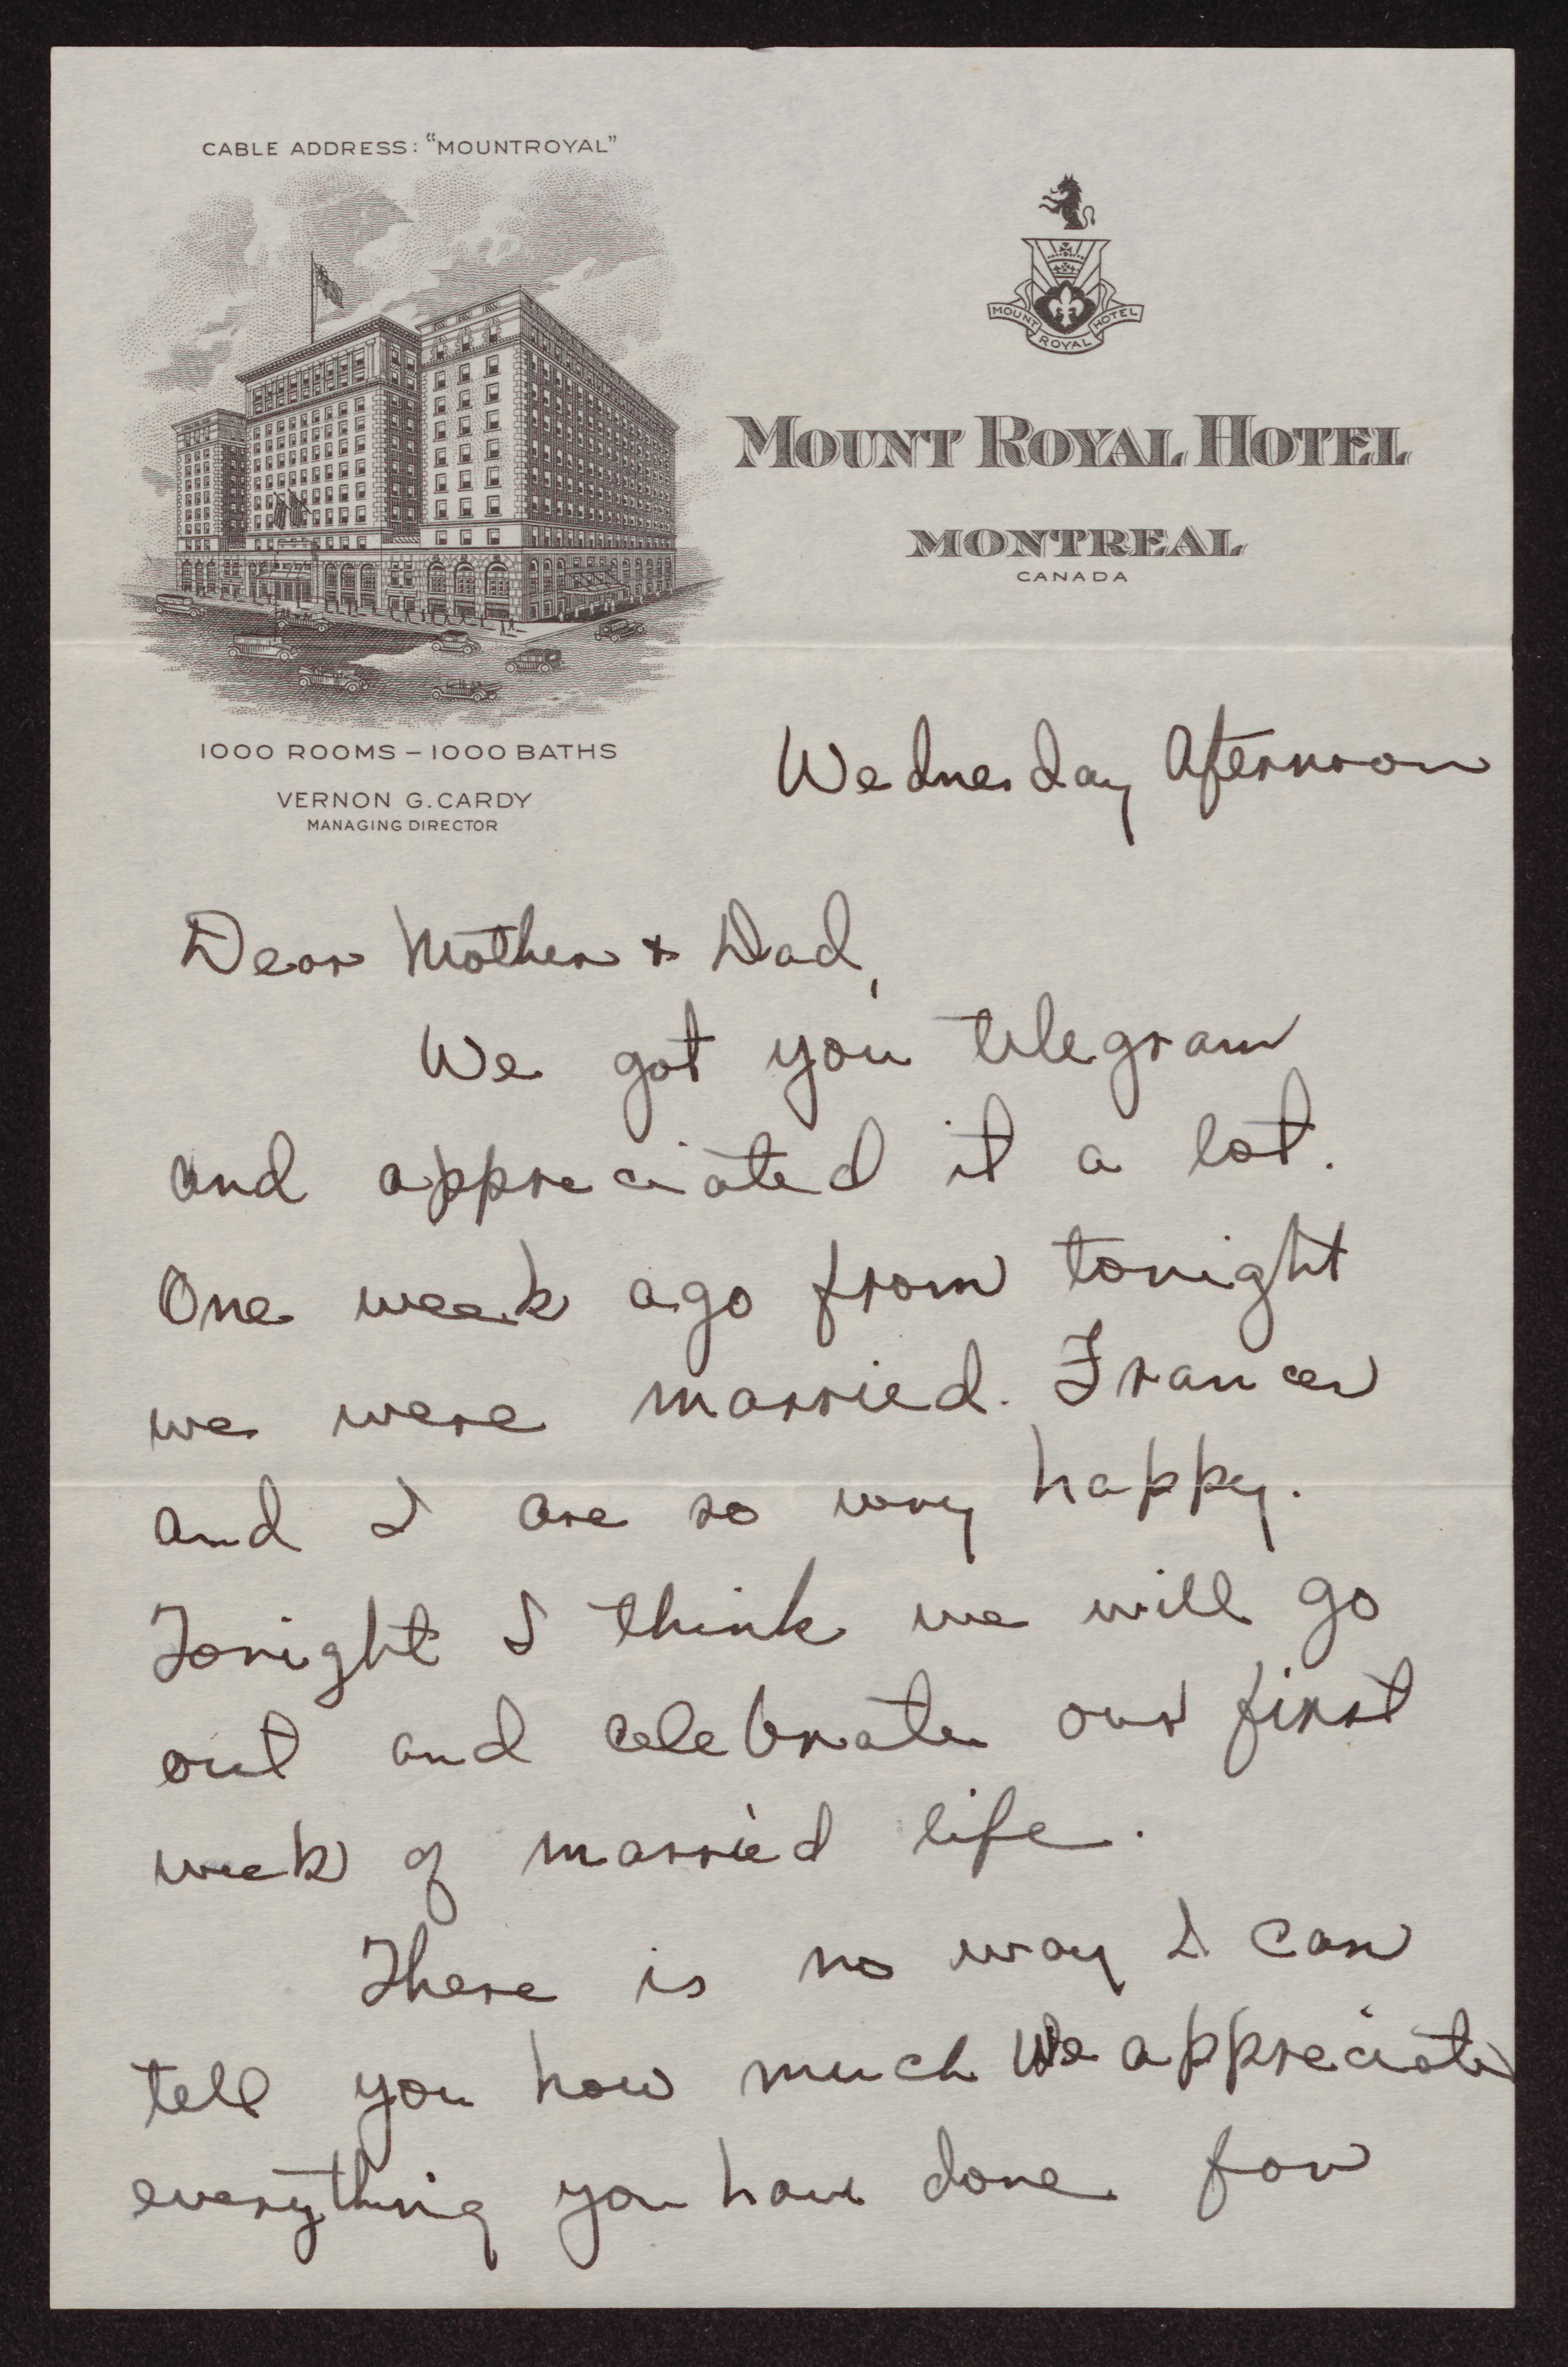 CABLE ADDRESS: "MOUNTROYAL"
MOUNT ROYAL HOTEL
MOUNT ROYAL HOTEL
MONTREAL
CANADA
1000 ROOMS – 1000 BATHS
VERNON G. CARDY
MANAGING DIRECTOR
Wednesday Afternoon
Dear Mother + Dad,
We got you telegram
and appreciated it a lot.
One week ago from tonight
we were married. Frances
and I are so very happy.
Tonight I think we will go
out and celebrate our first
week of married life.
There is no way I can
tell you how much We appreciate
everything you have done for